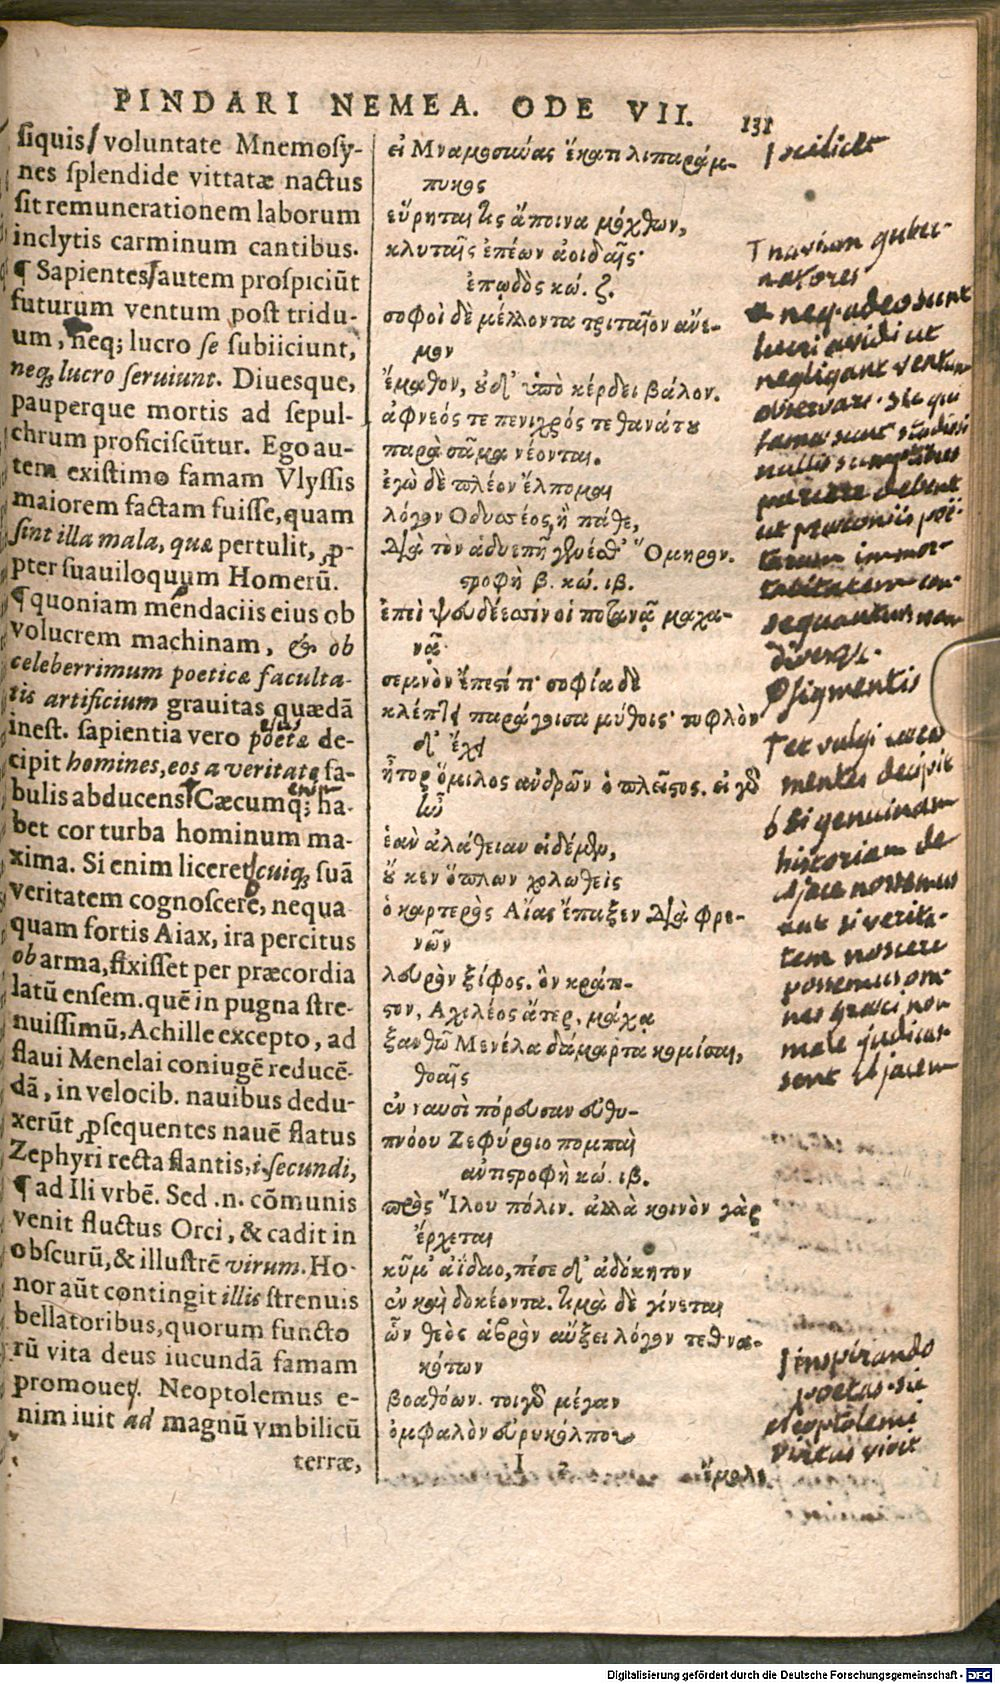 PINDARI NEMEA. ODE VII.
131
siquis/ voluntate Mnemosy-
nes splendide vittatæ nactus
sit remunerationem laborum
inclytis carminum cantibus.
¶ Sapientes autem prospiciũt
futurum ventum post tridu-
um, neq; lucro se subiiciunt,
neq; lucro seruiunt. Diuesque,
pauperque mortis ad sepul-
chrum proficiscũtur. Ego au-
tem existimo famam Vlyssis
maiorem factam fuisse, quam
sint illa mala, quæ pertulit, ꝓ-
pter suauiloquum Homerũ.
¶ quoniam mendaciis eius ob
volucrem machinam, & ob
celeberrimum poeticæ faculta-
tis artificium grauitas quædã
inest. sapientia vero poetæ de-
cipit homines, eos a veritate fa-
bulis abducens. Cæcumq; ha-
bet cor turba hominum ma-
xima. Si enim liceret cuiq; suã
veritatem cognoscere, nequa
quam fortis Aiax, ira percitus
ob arma, fixisset per præcordia
latũ ensem. quẽ in pugna stre-
nuissimũ, Achille excepto, ad
flaui Menelai coniugẽ reducẽ-
dã, in velocib. nauibus dedu-
xerũt ꝓsequentes nauẽ flatus
Zephyri recta flantis, i. secundi,
¶ ad Ili vrbẽ. Sed .n. cõmunis
venit fluctus Orci, & cadit in
obscurũ, & illustrẽ virum. Ho-
nor aũt contingit illis strenuis
bellatoribus, quorum functo
rũ vita deus iucundã famam
promouet. Neoptolemus e-
nim iuit ad magnũ vmbilicũ
terræ,
εἰ Μναμοσύνας ἕκατι λιπαράμ-
πυκος
εὕρηται τὶς ἄποινα μόχθων,
κλυταῖς ἐπέων ἀοιδαῖς·
ἐπῳδὸς κώ. ζ.
σοφοὶ δὲ μέλλοντα τριταῖον ἄνε-
μον
ἔμαθον, οὐδ' ὑπὸ κέρδει βάλον.
ἀφνεός τε πενιχρός τε θανάτου
παρὰ σᾶμα νέονται.
ἐγὼ δὲ πλέον ἔλπομαι
λόγον Ὀδυσσέος, ἢ πάθε,
διὰ τὸν ἁδυεπῆ γενέσθ' Ὅμηρον.
στροφὴ β. κώ. ιβ.
ἐπεὶ ψευδέεσσιν οἱ ποτανᾷ μαχα-
νᾷ
σεμνὸν ἔπεστί τι· σοφία δὲ
κλέπτει παράγοισα μύθοις· τυφλὸν
δ' ἔχει
ἦτορ ὅμιλος ἀνδρῶν ὁ πλεῖστος. εἰ γὰρ
ἦν
ἑὰν ἀλάθειαν ἰδέμεν,
οὔ κεν ὅπλων χολωθεὶς
ὁ καρτερὸς Αἴας ἔπαξεν διὰ φρε-
νῶν
λευρὸν ξίφος. ὃν κράτι-
στον, Ἀχιλέος ἄτερ, μάχᾳ
ξανθῷ Μενέλᾳ δάμαρτα κομίσαι,
θοαῖς
ἐν ναυσὶ πόρευσαν εὐθυ-
πνόου Ζεφύροιο πομπαὶ
ἀντιστροφὴ κώ. ιβ.
πρὸς Ἴλου πόλιν. ἀλλὰ κοινὸν γὰρ
ἔρχεται
κῦμ' ἀΐδαο, πέσε δ' ἀδόκητον
ἐν καὶ δοκέοντα. τιμὰ δὲ γίνεται
ὧν θεὸς ἁβρὸν αὔξει λόγον τεθνα-
κότων
βοαθόων. τοὶ γὰρ μέγαν
ὀμφαλὸν εὐρυκόλπου
I 2
ἔμολε.
scilicet
navium guber-
natores
neq. adeo sunt
lucri avidi ut
negligant ventum
observare. Sic qui
famæ sunt studiosi
nullis sumptibus
parcere debent
ut præconiis poe-
tarum immor-
talitatem con-
sequantur
figmentis
et vulgi cæcas
mentes decipit
si genuinam
historiam de
Ajace nossemus
aut si verita-
tem noscere
possemus om-
nes græci non
male judicas-
sent Ajacem
inspirando
poetas. sic
Neoptolemi
virtus vivit
Digitalisierung gefördert durch die Deutsche Forschungsgemeinschaft - DFG